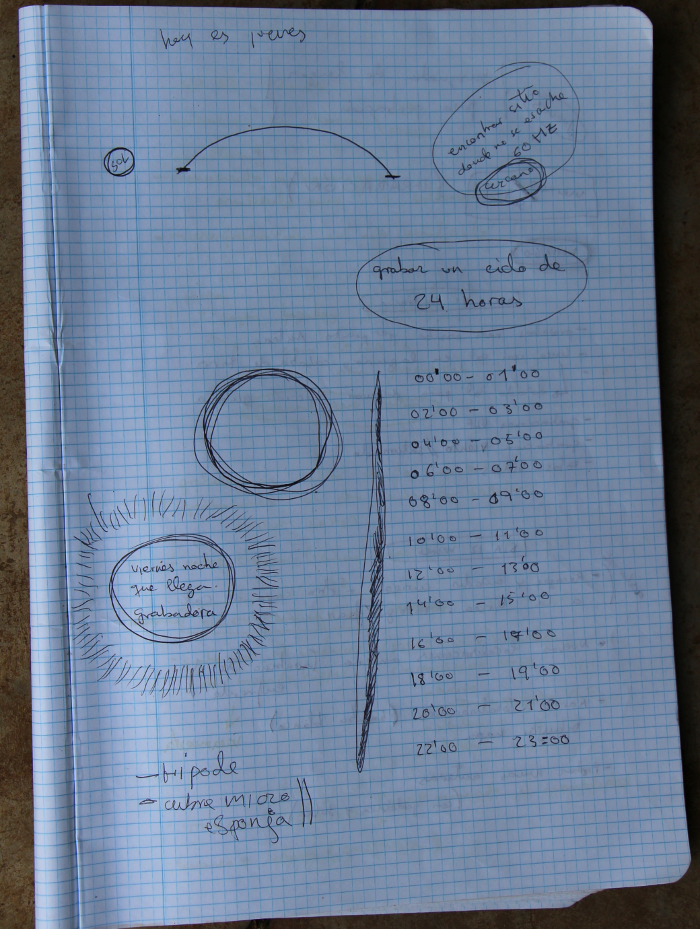 hoy es jueves
sol
encontrar sitio
donde no se escuche
60 HZ
cercano
grabar un ciclo de
24 horas
00'00 - 01'00
02'00 - 03'00
04'00 - 05'00
06'00 - 07'00
08'00 - 09'00
10'00 - 11'00
12'00 - 13'00
14'00 - 15'00
16'00 - 17'00
18'00 - 19'00
20'00 - 21'00
22'00 - 23:00
viernes noche
que llega
grabadora
- trípode
- cubre micro
esponja